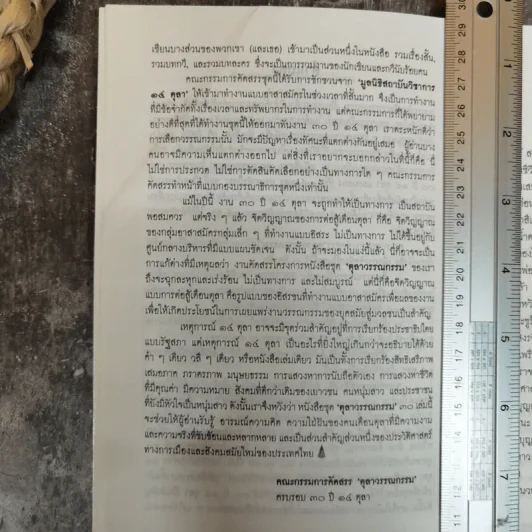 เขียนบางส่วนของพวกเขา (และเธอ) เข้ามาเป็นส่วนหนึ่งในหนังสือ รวมเรื่องสั้น,
รวมบทกวี, และรวมบทละคร ซึ่งจะเป็นการรวมงานของนักเขียนและกวีนับร้อยคน
คณะกรรมการคัดสรรชุดนี้ได้รับการชักชวนจาก 'มูลนิธิสถาบันวิชาการ
๑๔ ตุลา' ให้เข้ามาทำงานแบบอาสาสมัครในช่วงเวลาที่สั้นมาก จึงเป็นการทำงาน
ที่มีข้อจำกัดทั้งเรื่องเวลาและทรัพยากรในการทำงาน แต่คณะกรรมการก็ได้พยายาม
อย่างดีที่สุดที่ได้ทำงานชุดนี้ให้ออกมาทันงาน ๓๐ ปี ๑๔ ตุลา เราตระหนักดีว่า
การเลือกวรรณกรรมนั้น มักจะมีปัญหาเรื่องทัศนะที่แตกต่างกันอยู่เสมอ ผู้อ่านบาง
คนอาจมีความเห็นแตกต่างออกไป แต่สิ่งที่เราอยากจะบอกกล่าวในที่นี้ก็คือ นี่
ไม่ใช่การประกวด ไม่ใช่การตัดสินคัดเลือกอย่างเป็นทางการใด ๆ คณะกรรมการ
คัดสรรทำหน้าที่แบบกองบรรณาธิการชุดหนึ่งเท่านั้น
แม้ในปีนี้ งาน ๓๐ ปี ๑๔ ตุลา จะถูกทำให้เป็นทางการ เป็นสถาบัน
พอสมควร แต่จริง ๆ แล้ว จิตวิญญาณของการต่อสู้เดือนตุลา ก็คือ จิตวิญญาณ
ของกลุ่มอาสาสมัครกลุ่มเล็ก ๆ ที่ทำงานแบบอิสระ ไม่เป็นทางการ ไม่ได้ขึ้นอยู่กับ
ศูนย์กลางบริหารที่มีแบบแผนชัดเจน ดังนั้น ถ้าจะมองในแง่นี้แล้ว นี่ก็อาจจะเป็น
การแก้ต่างที่มีเหตุผลว่า งานคัดสรรโครงการหนังสือชุด 'ตุลาวรรณกรรม' ของเรา
ถึงจะฉุกละหุกและเร่งร้อน ไม่เป็นทางการ และไม่สมบูรณ์ แต่นี่ก็คือจิตวิญญาณ
แบบการต่อสู้เดือนตุลา คือรูปแบบของอิสรชนที่ทำงานแบบอาสาสมัครเพื่อผลของงาน
เพื่อให้เกิดประโยชน์ในการเผยแพร่งานวรรณกรรมของยุคสมัยสู่มวลชนเป็นสำคัญ
เหตุการณ์ ๑๔ ตุลา อาจจะมีจุดร่วมสำคัญอยู่ที่การเรียกร้องประชาธิปไตย
แบบรัฐสภา แต่เหตุการณ์ ๑๔ ตุลา เป็นอะไรที่ยิ่งใหญ่เกินกว่าจะอธิบายได้ด้วย
คำ ๆ เดียว วลี ๆ เดียว หรือหนังสือเล่มเดียว มันเป็นทั้งการเรียกร้องสิทธิเสรีภาพ
เสมอภาค ภราดรภาพ มนุษยธรรม การแสวงหาการนับถือตัวเอง การแสวงหาชีวิต
ที่มีคุณค่า มีความหมาย สังคมที่ดีกว่าเดิมของเยาวชน คนหนุ่มสาว และประชาชน
ที่ยังมีหัวใจเป็นหนุ่มสาว ดังนั้นเราจึงหวังว่า หนังสือชุด 'ตุลาวรรณกรรม' ๓๐ เล่มนี้
จะช่วยให้ผู้อ่านรับรู้ อารมณ์ความคิด ความใฝ่ฝันของคนเดือนตุลาที่มีความงาม
และความจริงที่ซับซ้อนและหลากหลาย และเป็นส่วนสำคัญส่วนหนึ่งของประวัติศาสตร์
ทางการเมืองและสังคมสมัยใหม่ของประเทศไทย
คณะกรรมการคัดสรร 'ตุลาวรรณกรรม'
ครบรอบ ๓๐ ปี ๑๔ ตุลา